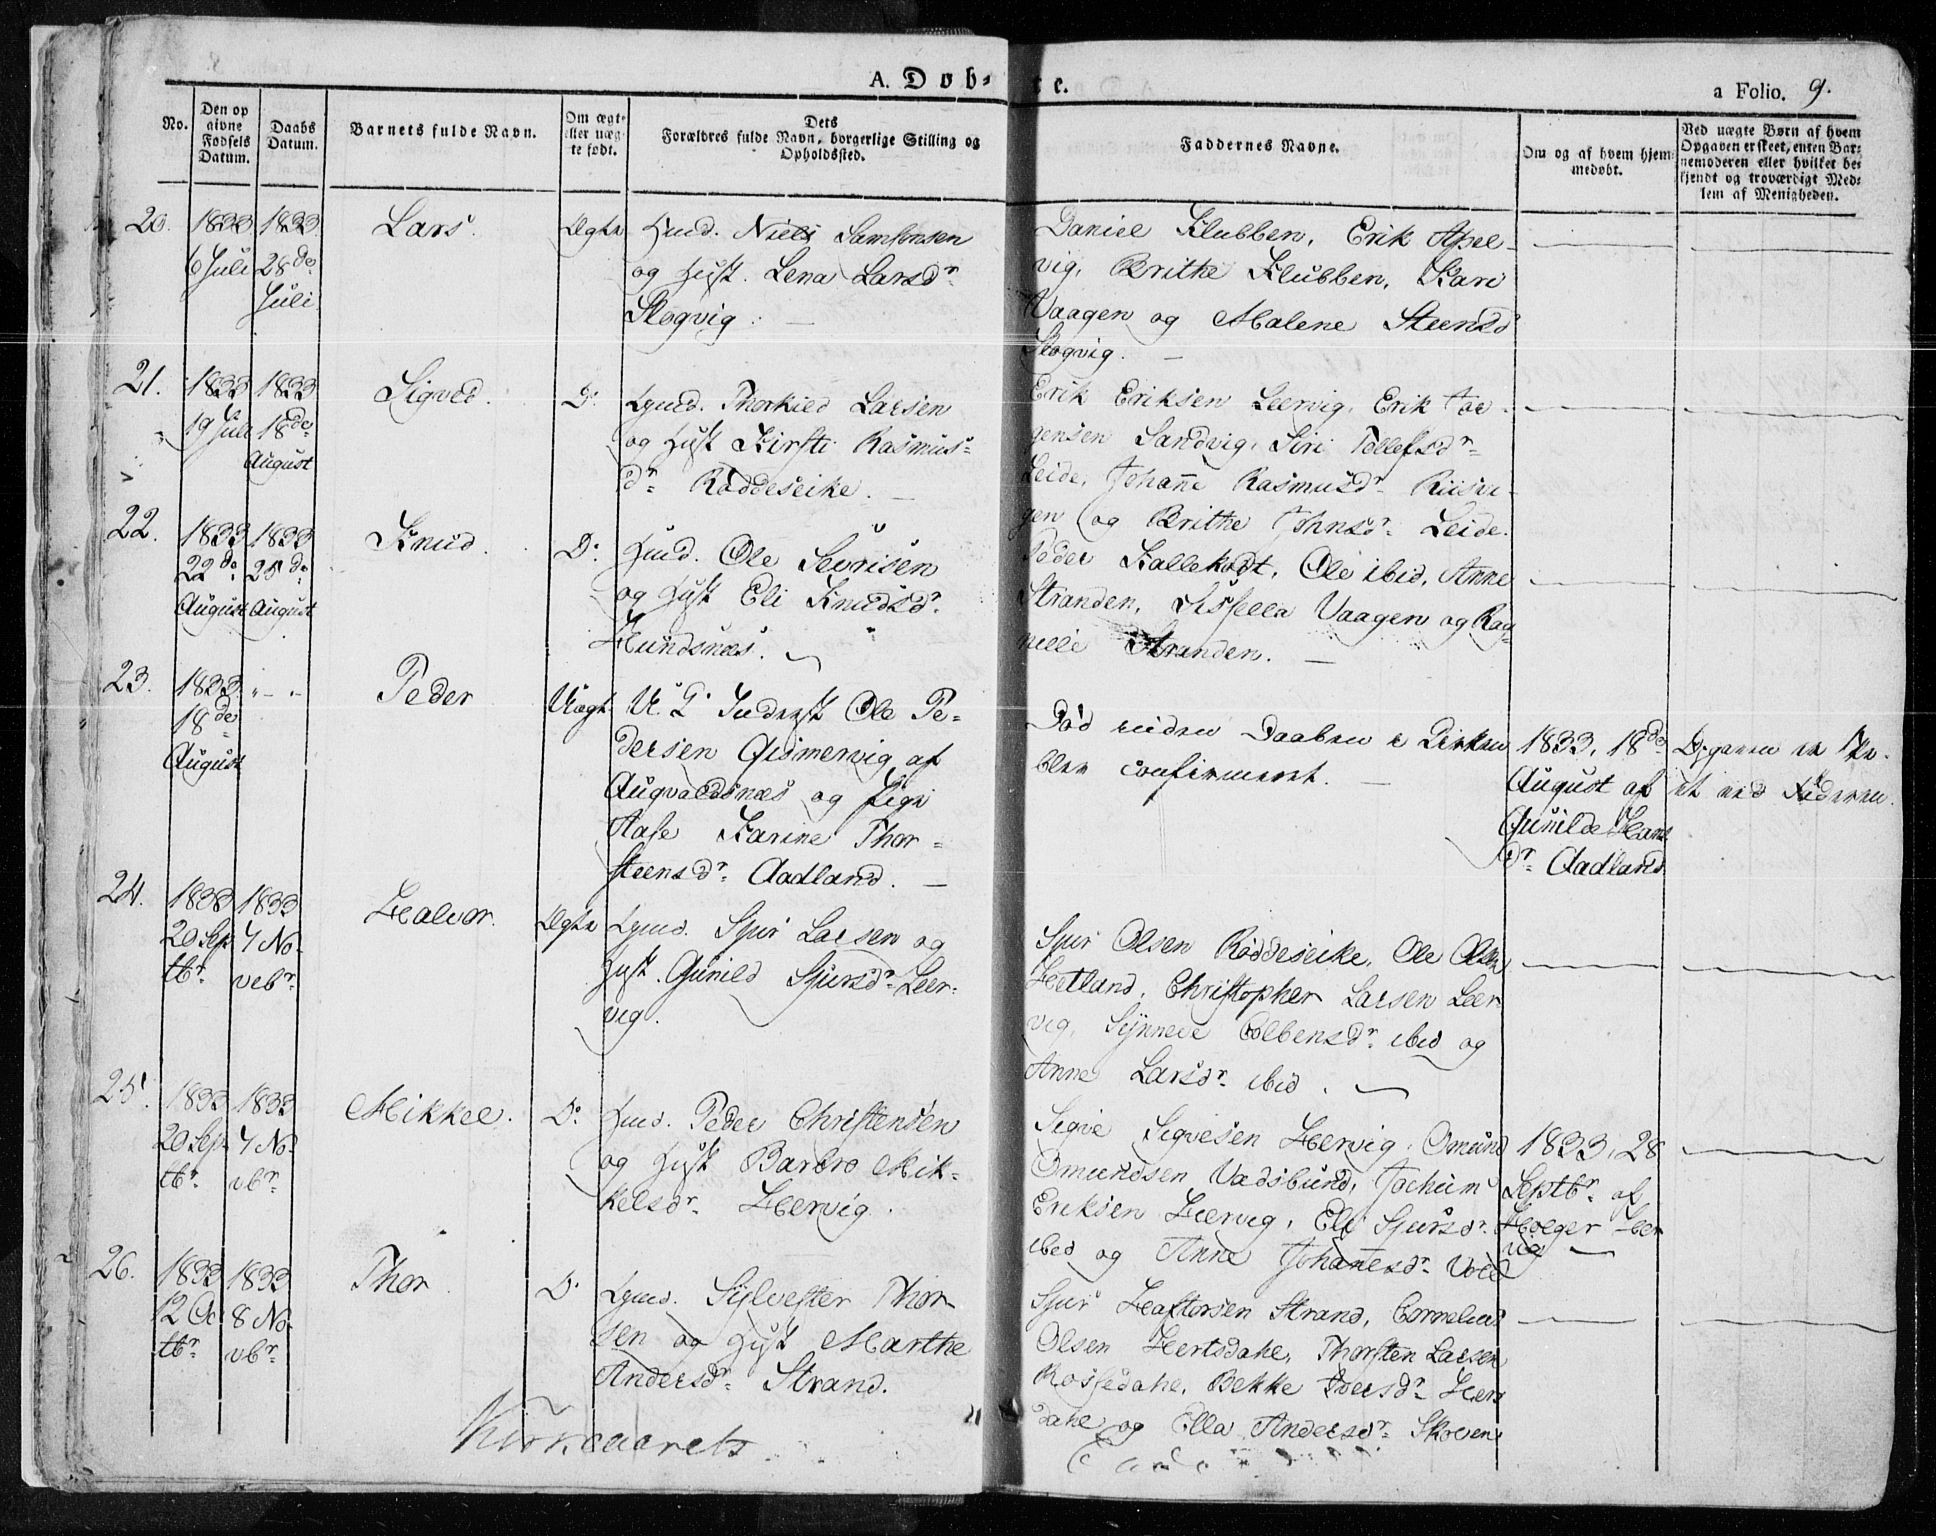 A. Døb-
te.
a Folio. 9.
No.
Den op
givne
Fødsels
Datum.
Daabs
Datum.
Barnets fulde Navn.
Om ægt-
eller uæg-
te født.
Dets
Forældres fulde Navn, borgerlige Stilling og
Opholdssted.
Faddernes Navne.
Om og af hvem hjem-
medøbt.
Ved uægte Børn af hvem
Opgaven er skeet, enten Bar-
nemoderen eller hvilket be-
kjendt og troværdigt Med-
lem af Menigheden.
20.
1833
6 Juli
1833
28de
Juli
Lars
Ægte
Huusm. Niels Samsonsen
og Hust. Lena Larsdr.
Slogvig.
Daniel Klubben, Erik Apel-
vig, Brithe Klubben, Kari
Vaagen og Malene Steensdr
Slogvig.
21.
1833
19 Juli
1833
18de
August
Sigved.
Do.
Thorkild Larsen
og Hust Kirsti Rasmus-
dr. Røddeseike.
Erik Eriksen Leervig, Erik Jør-
gensen Sandvig, Siri Tollefsdr.
Leide, Johanne Rasmusdr. Riisvi-
gen og Brithe Johnsdr. Leide.
22.
1833
22de
August
1833
25de
August
Knud.
Do.
Ole Sevrisen
og Hust Eli Knudsdr.
Hundsnæs.
Peder Kallekodt, Ole ibid, Anne
Stranden, Sissella Vaagen og Rag-
nille Stranden.
23.
1833
18de
August
" - "
Peder
Uægte
Ole Pe-
dersen Gismervig af
Augvaldsnæs og Pige
Aase Karine Thor-
steensdr. Aadland.
Død inden Daaben i Kirken
blev confirmeret.
1833, 18de
August af
Gunilde Hans
dr. Aadland
Opgaven er
et ved Faderen.
24.
1833
20 Sep
tbr.
1833
7 No-
vebr.
Halvor.
Ægte
Sjur Larsen og
Hust. Gunild Sjursdr. Leer-
vig.
Sjur Olsen Røddeseike, Ole Olsen
Hetland, Christopher Larsen Leer
vig, Synneve Colbensdr. ibid og
Anne Larsdr. ibid.
25.
1833
20 Sep
tbr.
1833
7 No-
vbr.
Mikkel.
Do.
Peder Christensen
og Hust Barbro Mik-
kelsdr. Hervig.
Sigve Sigvesen Hervig, Omund
Omundsen Vadsbund, Jochum
Eriksen Leervig, Eli Sjursdr.
ibid og Anne Johannesdr. Vold
1833, 28
Septbr. af
Holger Her
vig
26.
1833
12 Oc
tbr.
1833
8 No-
vbr.
Thor
Do.
Sylvester Thor-
sen og Hust Marthe
Andersdr. Strand.
Sjur Haftorsen Strand, Cornelius
Olsen Hertsdahl, Thorsten Larsen
Rossedahl, Bekke Iversdr. Herts
dahl og Ella Andersdr. Skoven
Kirkeaarets
Ende